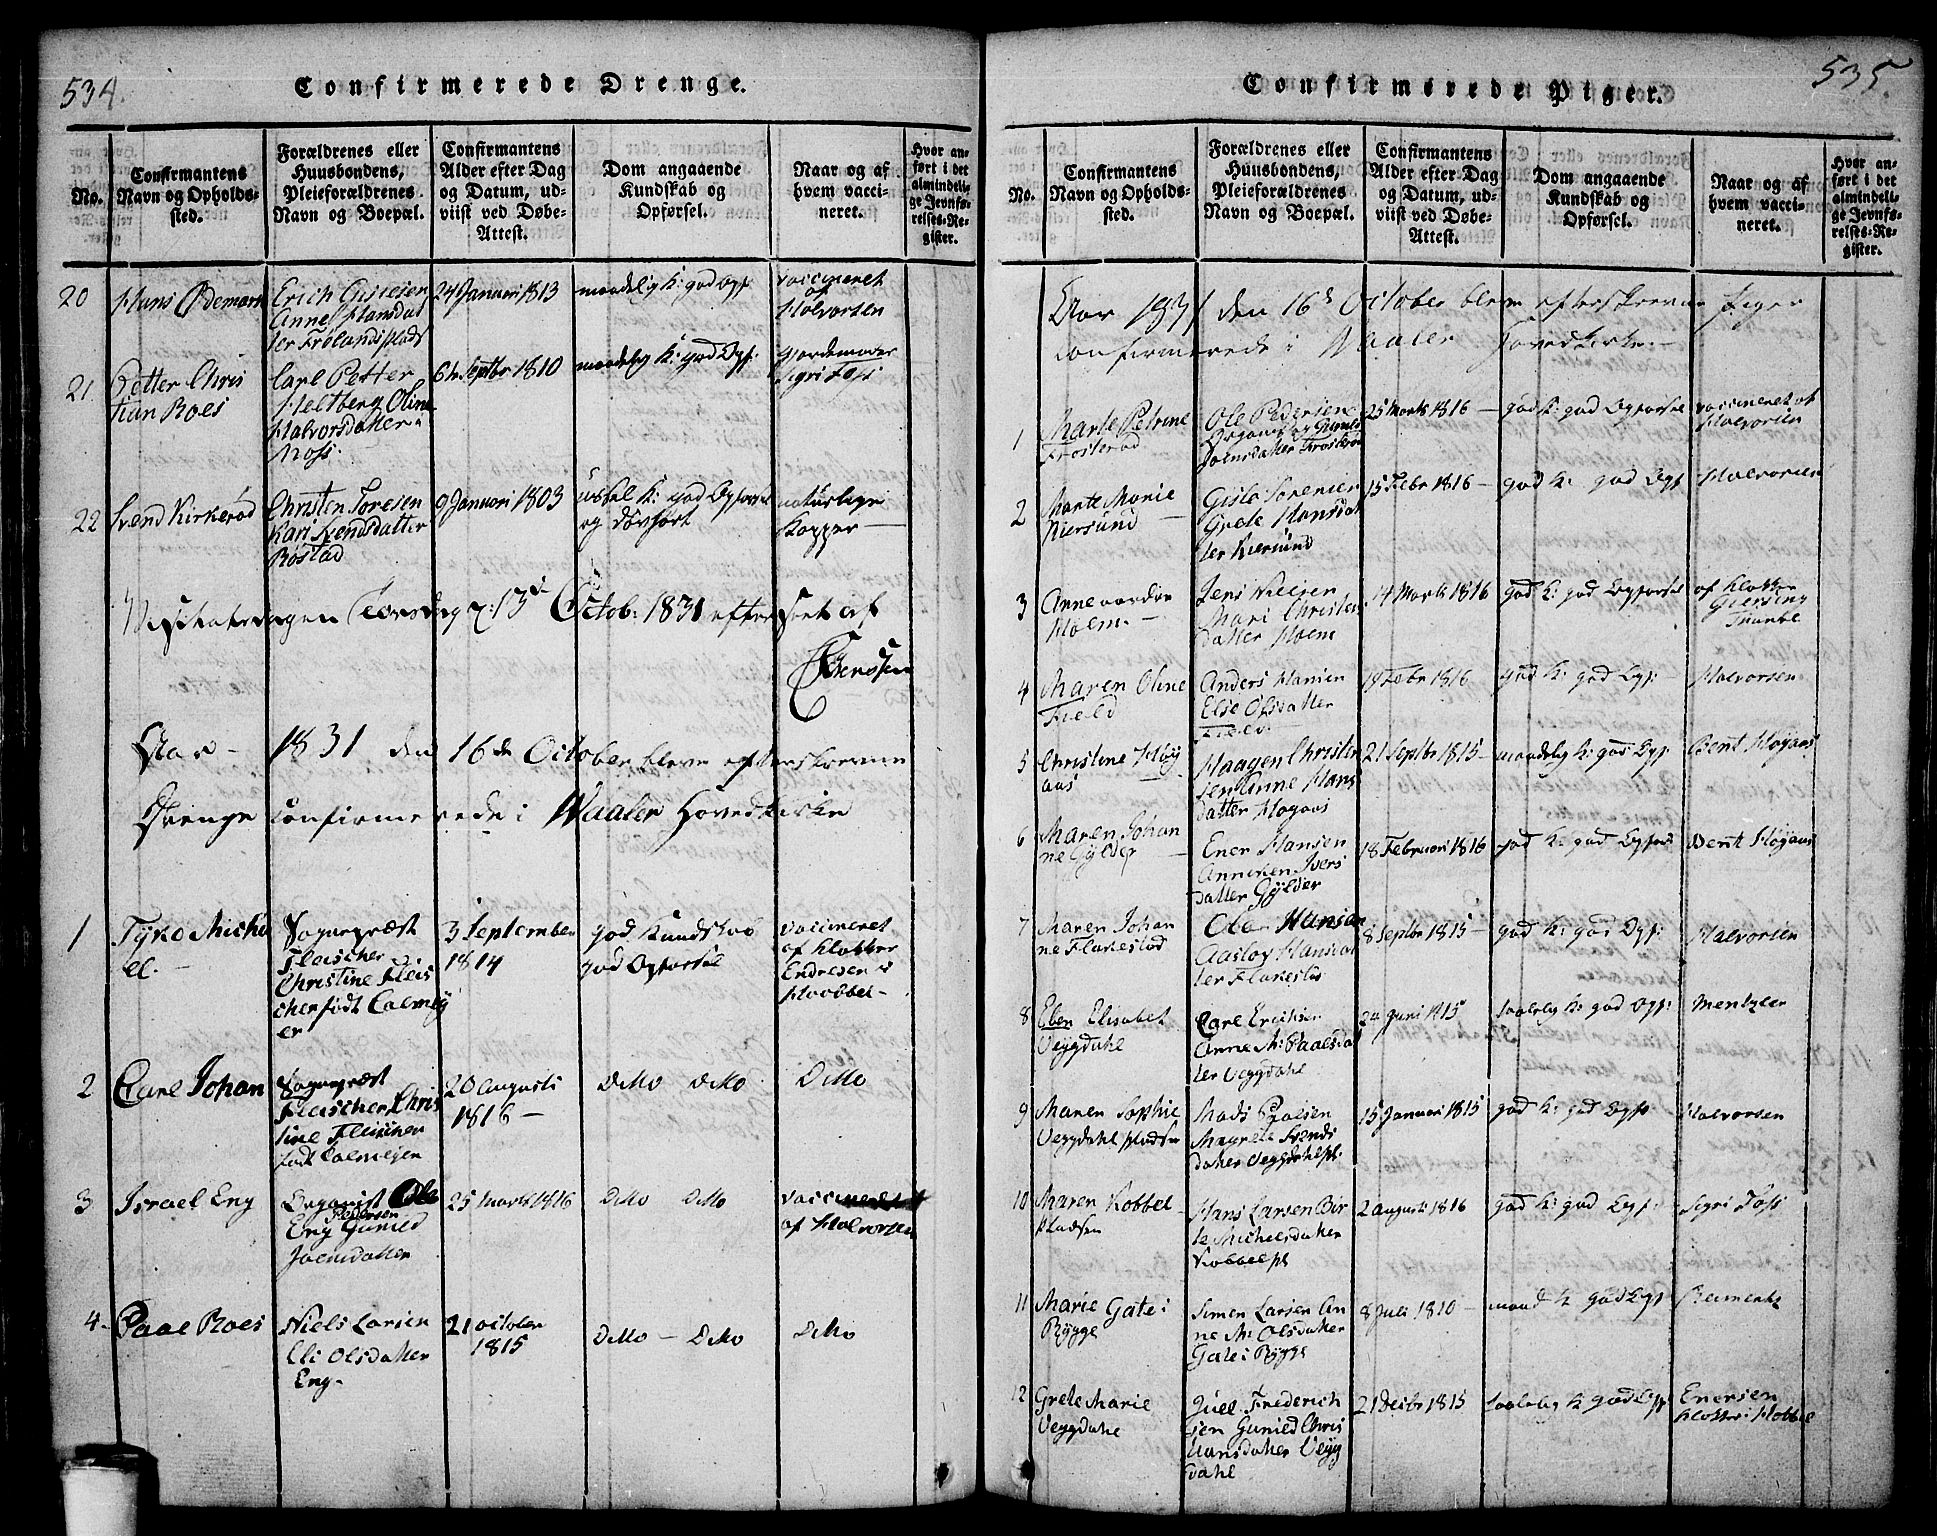 534.
Confirmerede Drenge.
No.
Confirmantens
Navn og Opholds-
sted.
Forældrenes eller
Huusbondens,
Pleieforældrenes
Navn og Boepæl.
Confirmantens
Alder efter Dag
og Datum, ud-
viist ved Døbe-
Attest.
Dom angaaende
Kundskab og
Opførsel.
Naar og af
hvem vacci-
neret.
Hvor an-
ført i det
almindeli-
ge Jevnfø-
relses-Re-
gister.
20
Hans Ødemark
Erich
Anne Hansdat
ter Frølandsplads
24 Januari 1813
maadelig K: god Opf:
vaccineret
af
Halvorsen
21.
Petter Chris
tian Roes
Carl Petter
Heltberg Oline
Halvorsdatter
Moss.
6te Septbr 1810
maadelig K: god Opf:
Gjordemoder
Sigri Foss
22
Svend Kirkerød
Christen Toresen
Kari Svendsdatter
Røstad
9 Januari 1803
ussel K: god Opførsel
og døvhørt
naturlige
Kopper
Visitatsdagen Torsdag d: 13de Octob: 1831 efterseet af
Aar 1831 den 16de October bleve efterskrevne
Drenge confirmerede i Waaler Hovedkirke
1
Tyko Micha
el.
Sognepræst
Fleischer
Christine Fleis
cher født Calmey
er
3 September
1814
god Kundskab
god Opførsel
vaccineret
af Klokker
Endresen i
Haabbel
2
Carl Johan
Sognepræst
Fleischer, Chris
tine Fleischer
født Calmejer
20 augusti
1816
Ditto Ditto
Ditto
3
Israel Eng
Organist Ole
Pedersen
Eng Gunild
Joensdatter
25 Marti 1816
Ditto Ditto
vaccineret
af Halvorsen
4.
Paal Roes
Niels Larsen
Eli Olsdatter
Eng.
21 october
1815
Ditto Ditto
Ditto
535.
Confirmerede Piger.
No.
Confirmantens
Navn og Opholds-
sted.
Forældrenes eller
Huusbondens,
Pleieforældrenes
Navn og Boepæl.
Confirmantens
Alder efter Dag
og Datum, ud-
viist ved Døbe-
Attest.
Dom angaaende
Kundskab og
Opførsel.
Naar og af
hvem vacci-
neret.
Hvor an-
ført i det
almindeli-
ge Jevnfø-
relses-Re-
gister.
Aar 1831 den 16de October bleve efterskrevne Piger
confirmerede i Waaler Hovedkirke
1
Marte Petrine
Frosterød
Ole Pedersen
Organist og Gunild
Joensdatter Frosterød
25 Marti 1816
god K: god Opførsel
vaccineret af
Halvorsen
2
Marte Marie
Kiersund
Gisle Sørensen
Grete Hansdat
ter Kiersund
15 Febr 1816
god K: god Opf
Halvorsen
3
Anne
Holm
Jens Nielsen
Mari Christens
datter Holm
14 Marti 1816
god K: god Opførsel
af Klokker
4
Maren Oline
Field
Anders Hansen
Else Olsdatter
Field
19 Febr 1816
god K: god Opf:
Halvorsen
5
Christine Høy
aas
Haagen Christen
sen Anne Hans
datter Høgaas
21 Septbr 1815
maadelig K: god Opf:
Bent Høgaas
6
Maren Johan
ne Gylder
Ener Hansen
Anniken Ivers
datter Gylder
18 Februari 1816
god K: god Opførs
Bent Høgaas
7
Maren Johan
ne Flakestad
Ole Hansen
Aaslov Hansdat
ter Flakestad
8 Septbr 1815
god K: god Opf:
Halvorsen
8
Elen Elisabet
Veggdahl
Carl Erichsen
Anne M: Paalsdat
ter Veggdahl
24 Juni 1815
taalelig K: god Opf:
Mentzler
9
Maren Sophie
Veggdahl pladsen
Mads Paalsen
Magrete Svends
datter Veggdahlpl.
15 Januari 1815
god K: god Opf:
Halvorsen
10
Maren Kobbel
pladsen
Hans Larsen Bir
te Michelsdatter
Kobbelpl
2 augusti 1816
god K: god Opf:
Sigri Foss
11
Marie Gate i
Rygge
Simen Larsen An
ne M: Olsdatter
Gate i Rygge
8 Juli 1810
maad K god Opf
12
Grete Marie
Veggdahl
Juel Frederich
sen Gunild Chris
tiansdatter Vegg
dahl
21 Decbr 1815
taalelig K god Opf
Enersen